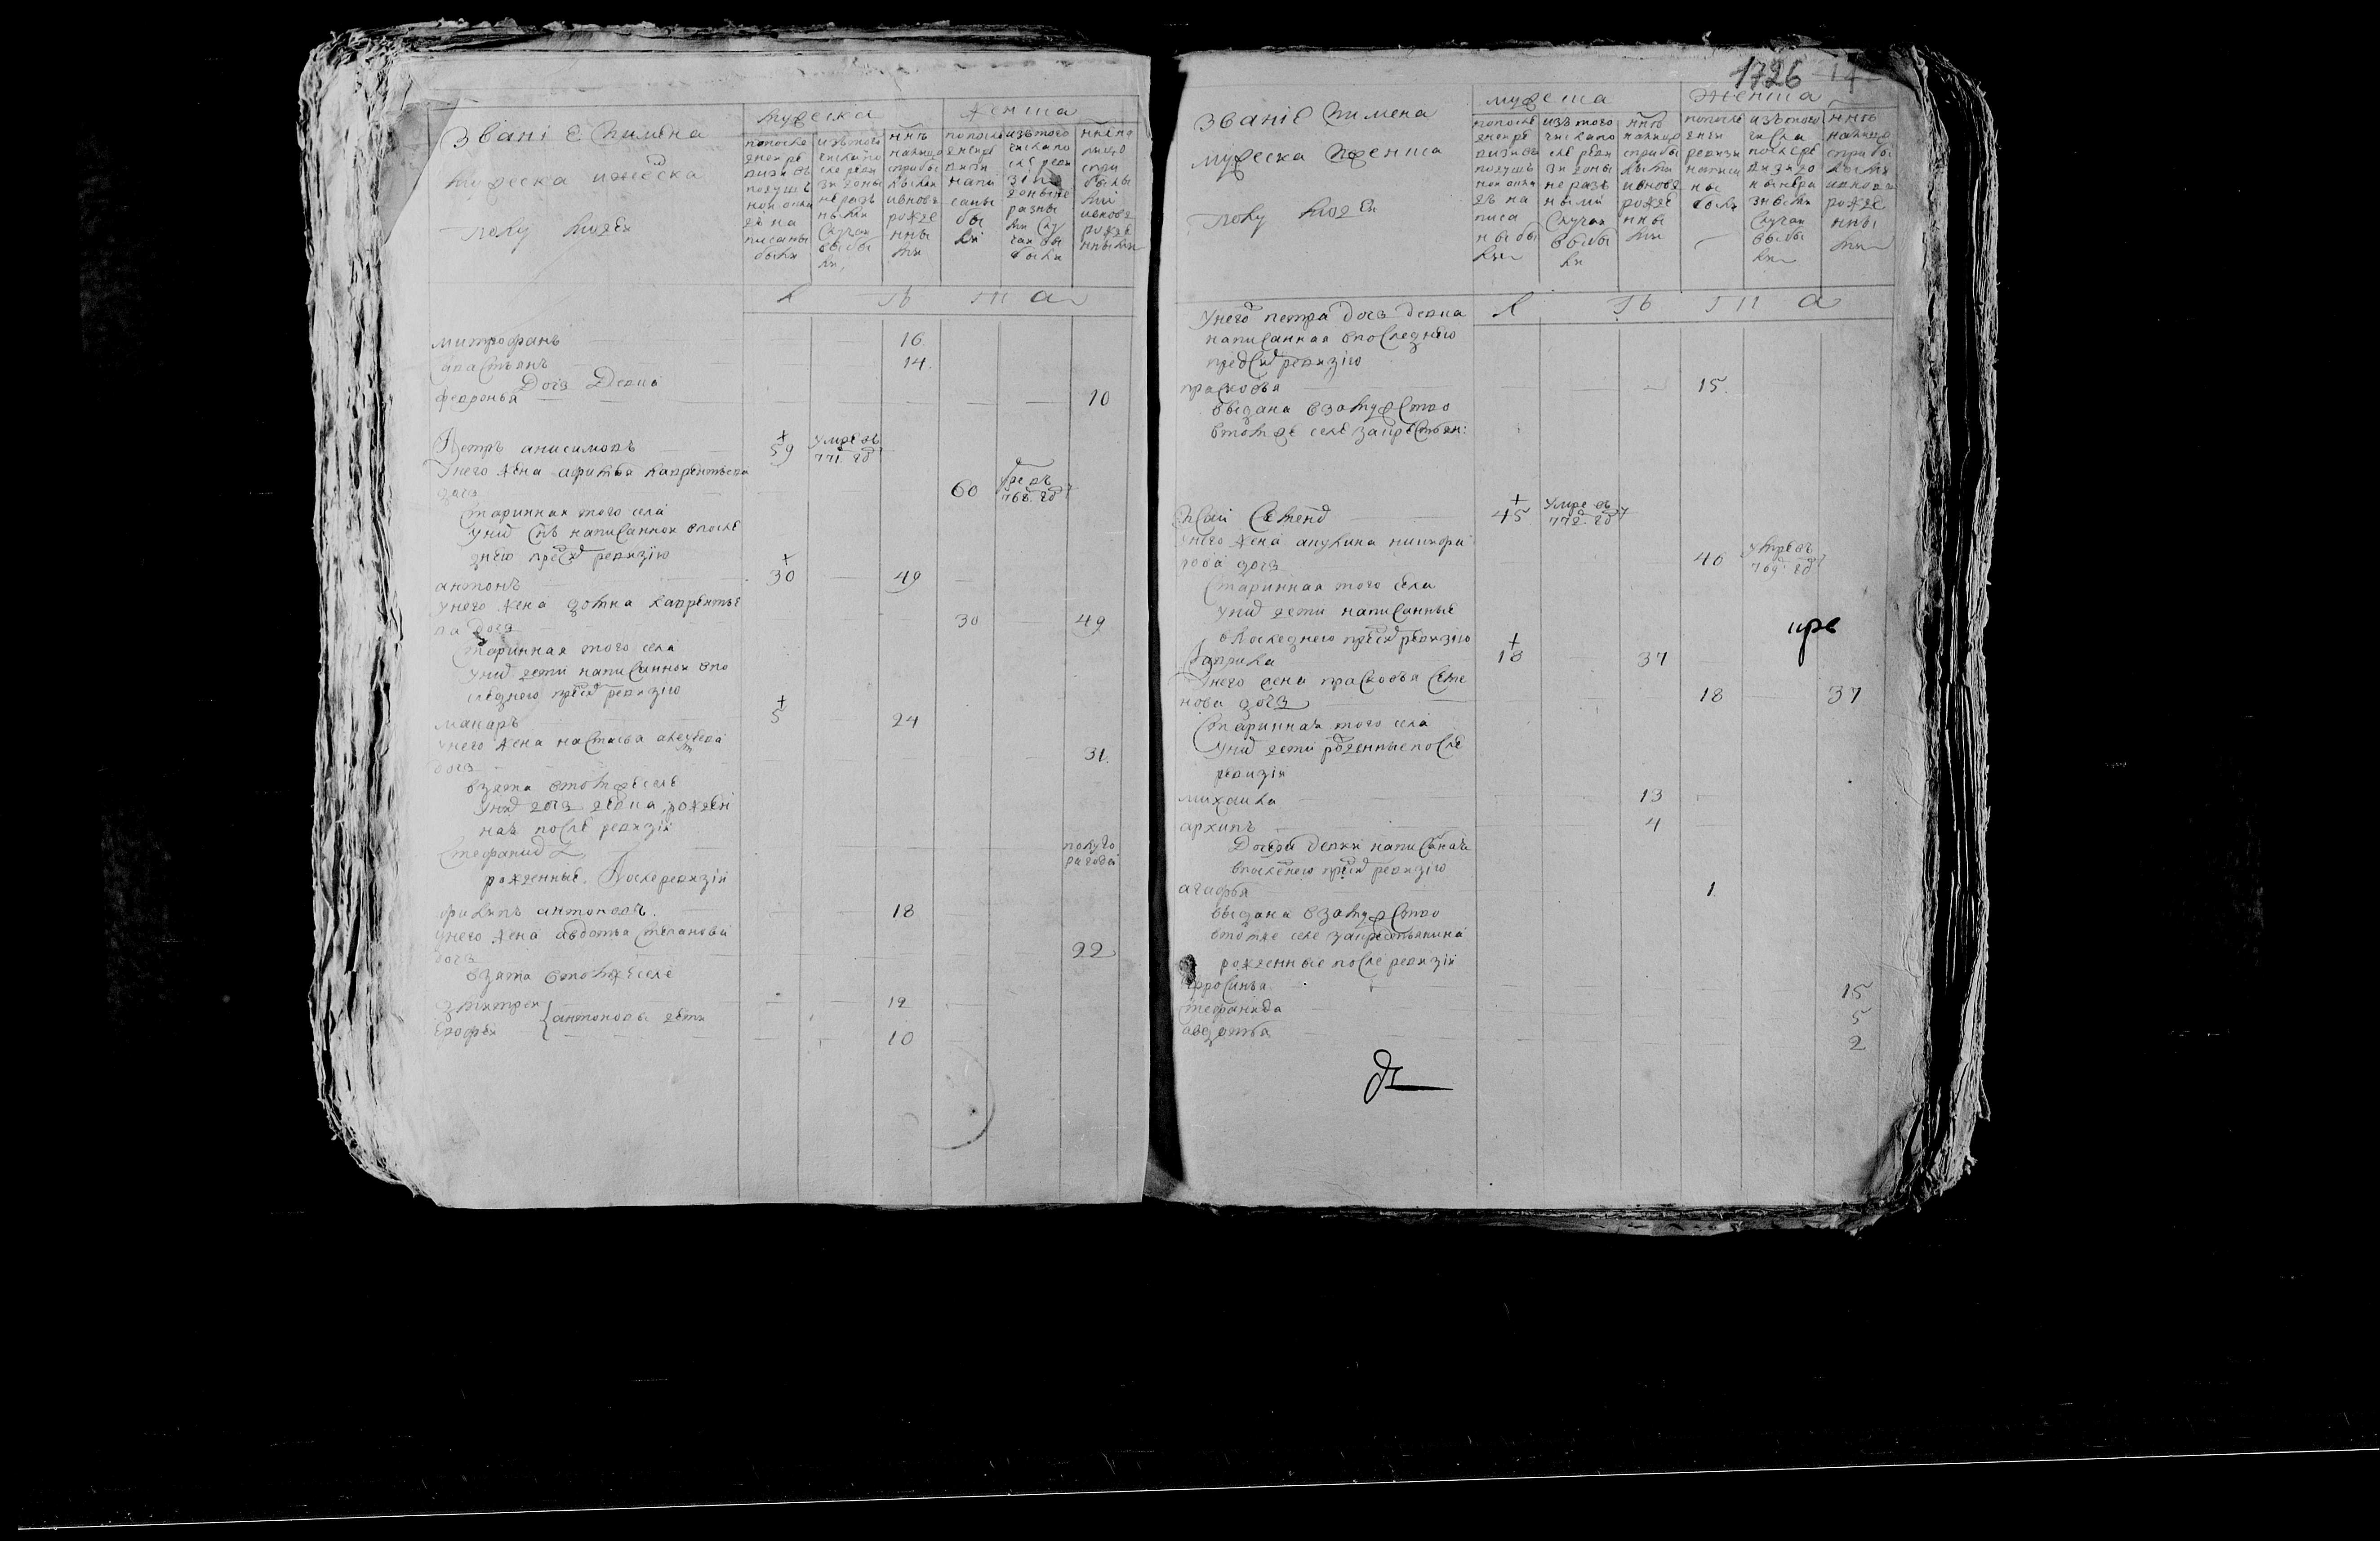 званіе и имена
мужеска и женска
полу людей
мужеска
женска
по послѣ
дней ре
визіи въ
подуш
номъ окла
дѣ на
писаны
были
изъ того
числа по
слѣ реви
зіи до ны
нѣ разн
ными
случаи
выбы
ли
ннѣ
налицо
с прибы
лыми
и вновь
рожде
нны
ми
по послѣ
дней ре
визіи
напи
саны
бы
ли
изъ того
числа по
слѣ реви
зіи
до ныне
разны
ми слу
чаи вы
были
ннѣ на
лицо
с при
былы
ми
и вновь
рожде
нными
л ѣ т а
митрофанъ 16.
савастьянъ 14.
дочь девка
февронья 10
Петръ анисимовъ 59 умре въ 771. гд
у него жена афимья лаврентьева
дочь 60 умре въ 768. гд
старинная того села
у них снъ написанной в после
днею пред сим ревизїю
антонъ 30 49
у него жена домна лаврентье
ва дочь 30 49
старинная того села
у них дети написанной в по
следнею пред сим ревизїю
макаръ 5 24
у него жена настасья алексеева
дочь 31.
взята в том же селе
у них дочь девка рожден
ная после ревизіи
стефанида полуто
ра года
рожденные после ревизіи
филипъ антоновъ. 18
у него жена авдотья степанова
дочь 22
взята в том же селе
дмитрей 12
антоновы дети
ерофей 10
1726
званіе и имена
мужеска и женска
полу людей
мужеска
женска
по после
дней ре
визіи въ
подуш
номъ окла
дѣ на
писа
ны бы
ли
изъ того
числа по
сле реви
зіи до ны
не разн
ными
случаи
выбы
ли
ннѣ
налицо
с прибы
лыми
и вновь
рожде
нны
ми
по после
дней
ревизіи
написа
ны
были
изъ того
числа
после ре
визіи до
ныне ра
зными
случаи
выбы
ли
ннѣ
налицо
с прибы
лыми
и вновь
рожде
нны
ми
л ѣ т а
у него петра дочь девка
написанная в последнею
пред сим ревизїю
прасковья 15.
выдана в замужство
в том же селе за крестьян:
исай семенов 45 умре въ 772. гд
у него жена акулина никифо
рова дочь 46 умре въ 769. гд
старинная того села
у них дети написанные
в последнею пред сим ревизїю
гаврила 18 37
у него жена прасковья семе
нова дочь 18 37
старинная того села
у них дети рожденные после
ревизіи
михаила 13
архипъ 4
дочери девки написаная
в последнею пред сим ревизїю
агафья 1.
выдана в замужство
в том же селе за крестьянина
рожденные после ревизіи
ефросинья 15
стефанида 5
авдотья 2